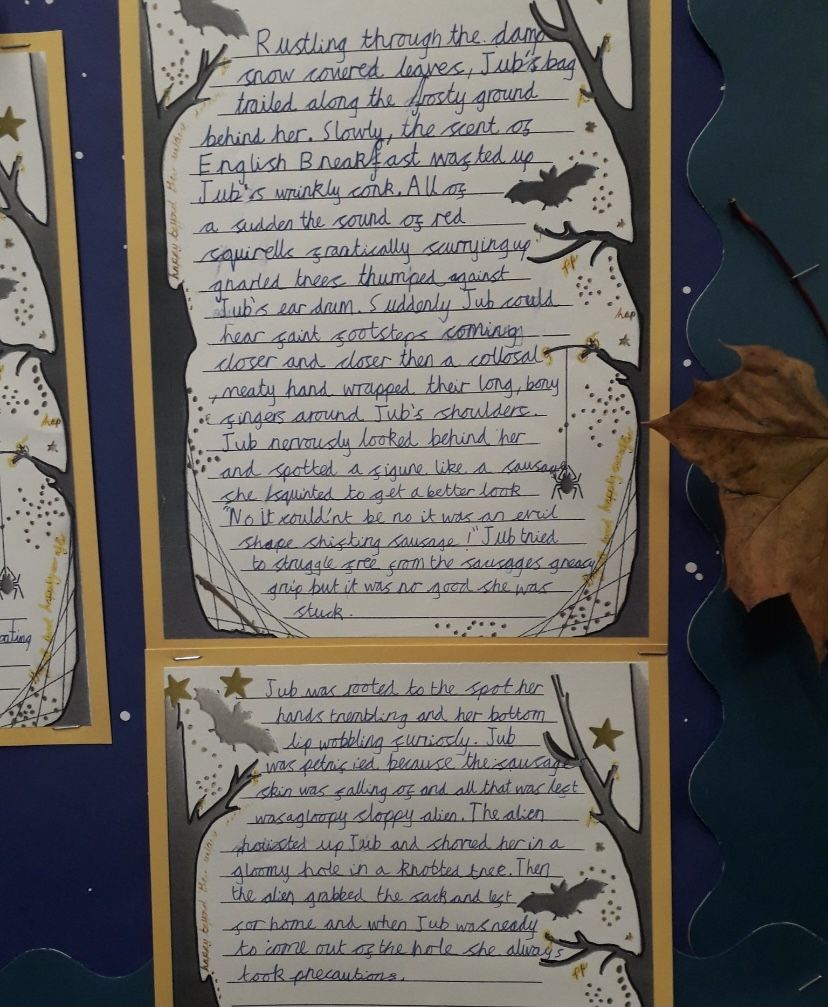 Rustling through the damp
snow covered leaves, Jub's bag
trailed along the frosty ground
behind her. Slowly, the scent of
English Breakfast wafted up
Jub's wrinkly conk. All of
a sudden the sound of red
squirells frantically scurrying up
gnarled trees thumped against
Jub's ear drum. Suddenly Jub could
hear faint footsteps coming
closer and closer then a collosal
, meaty hand wrapped their long, bony
fingers around Jub's shoulders.
Jub nervously looked behind her
and spotted a figure like a sausage
she squinted to get a better look
"No it could'nt be no it was an evil
shape shifting sausage!" Jub tried
to struggle free from the sausages greasy
grip but it was no good she was
stuck.
Jub was rooted to the spot her
hands trembling and her bottom
lip wobbling furiosly. Jub
was petrified because the sausage
skin was falling of and all that was left
was a gloopy sloppy alien. The alien
up Jub and shoved her in a
gloomy hole in a knotted tree. Then
the alien grabbed the sack and left
for home and when Jub was ready
to come out of the hole she always
took precautions.
eating
hap
hap